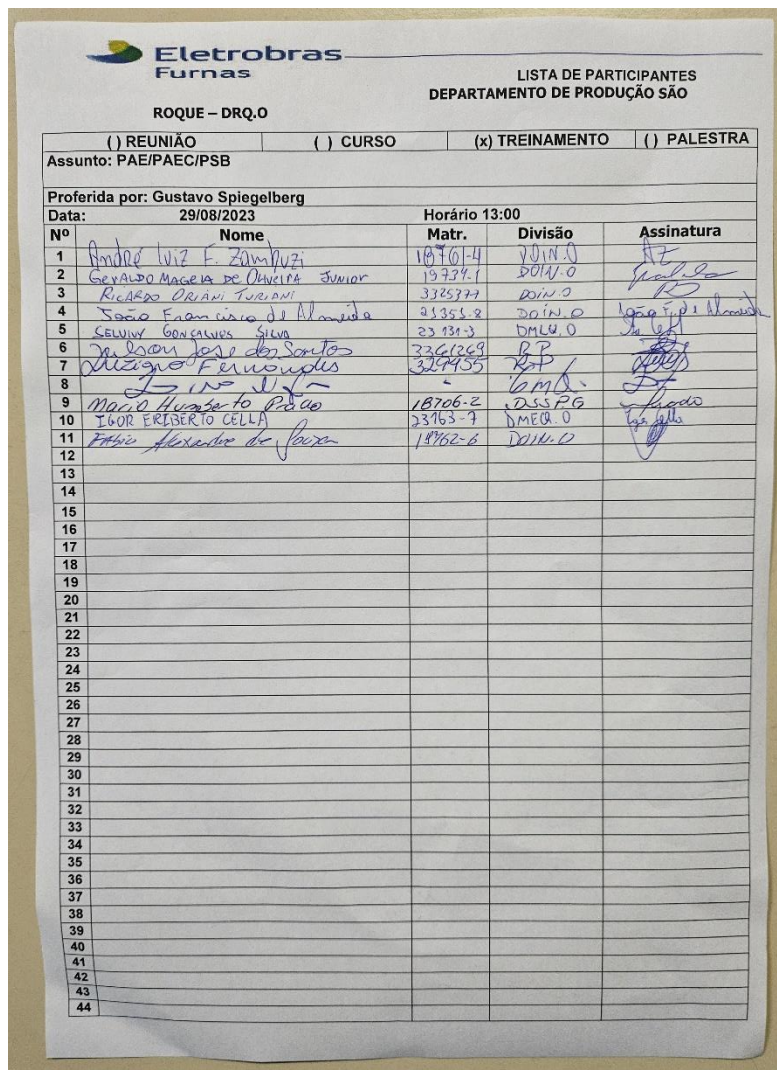 Eletrobras
Furnas
LISTA DE PARTICIPANTES
DEPARTAMENTO DE PRODUÇÃO SÃO
ROQUE – DRQ.O
( ) REUNIÃO ( ) CURSO (x) TREINAMENTO ( ) PALESTRA
Assunto: PAE/PAEC/PSB
Proferida por: Gustavo Spiegelberg
Data: 29/08/2023 Horário 13:00
Nº Nome Matr. Divisão Assinatura
1 André Luiz F. Zambuzi 18761-4 DOIN.O AZ
2 Geraldo Magela de Oliveira Junior 19734-1 DOIN.O
3 Ricardo Oriani Turiani 3325377 DOIN.O
4 João Francisco de Almeida 21353-8 DOIN.O João F. de Almeida
5 Gonçalves Silva 23131-3
6 José dos Santos 3361269 R.P
7 Fernandes 329455 R.P
8 -
9 Mario Humberto Prado 18706-2 DSSPG Prado
10 IGOR ERIBERTO CELLA 23763-7 DMEQ.O Igor Cella
11 Fábio Alexandre de Souza 18762-6 DOIN.O
12
13
14
15
16
17
18
19
20
21
22
23
24
25
26
27
28
29
30
31
32
33
34
35
36
37
38
39
40
41
42
43
44